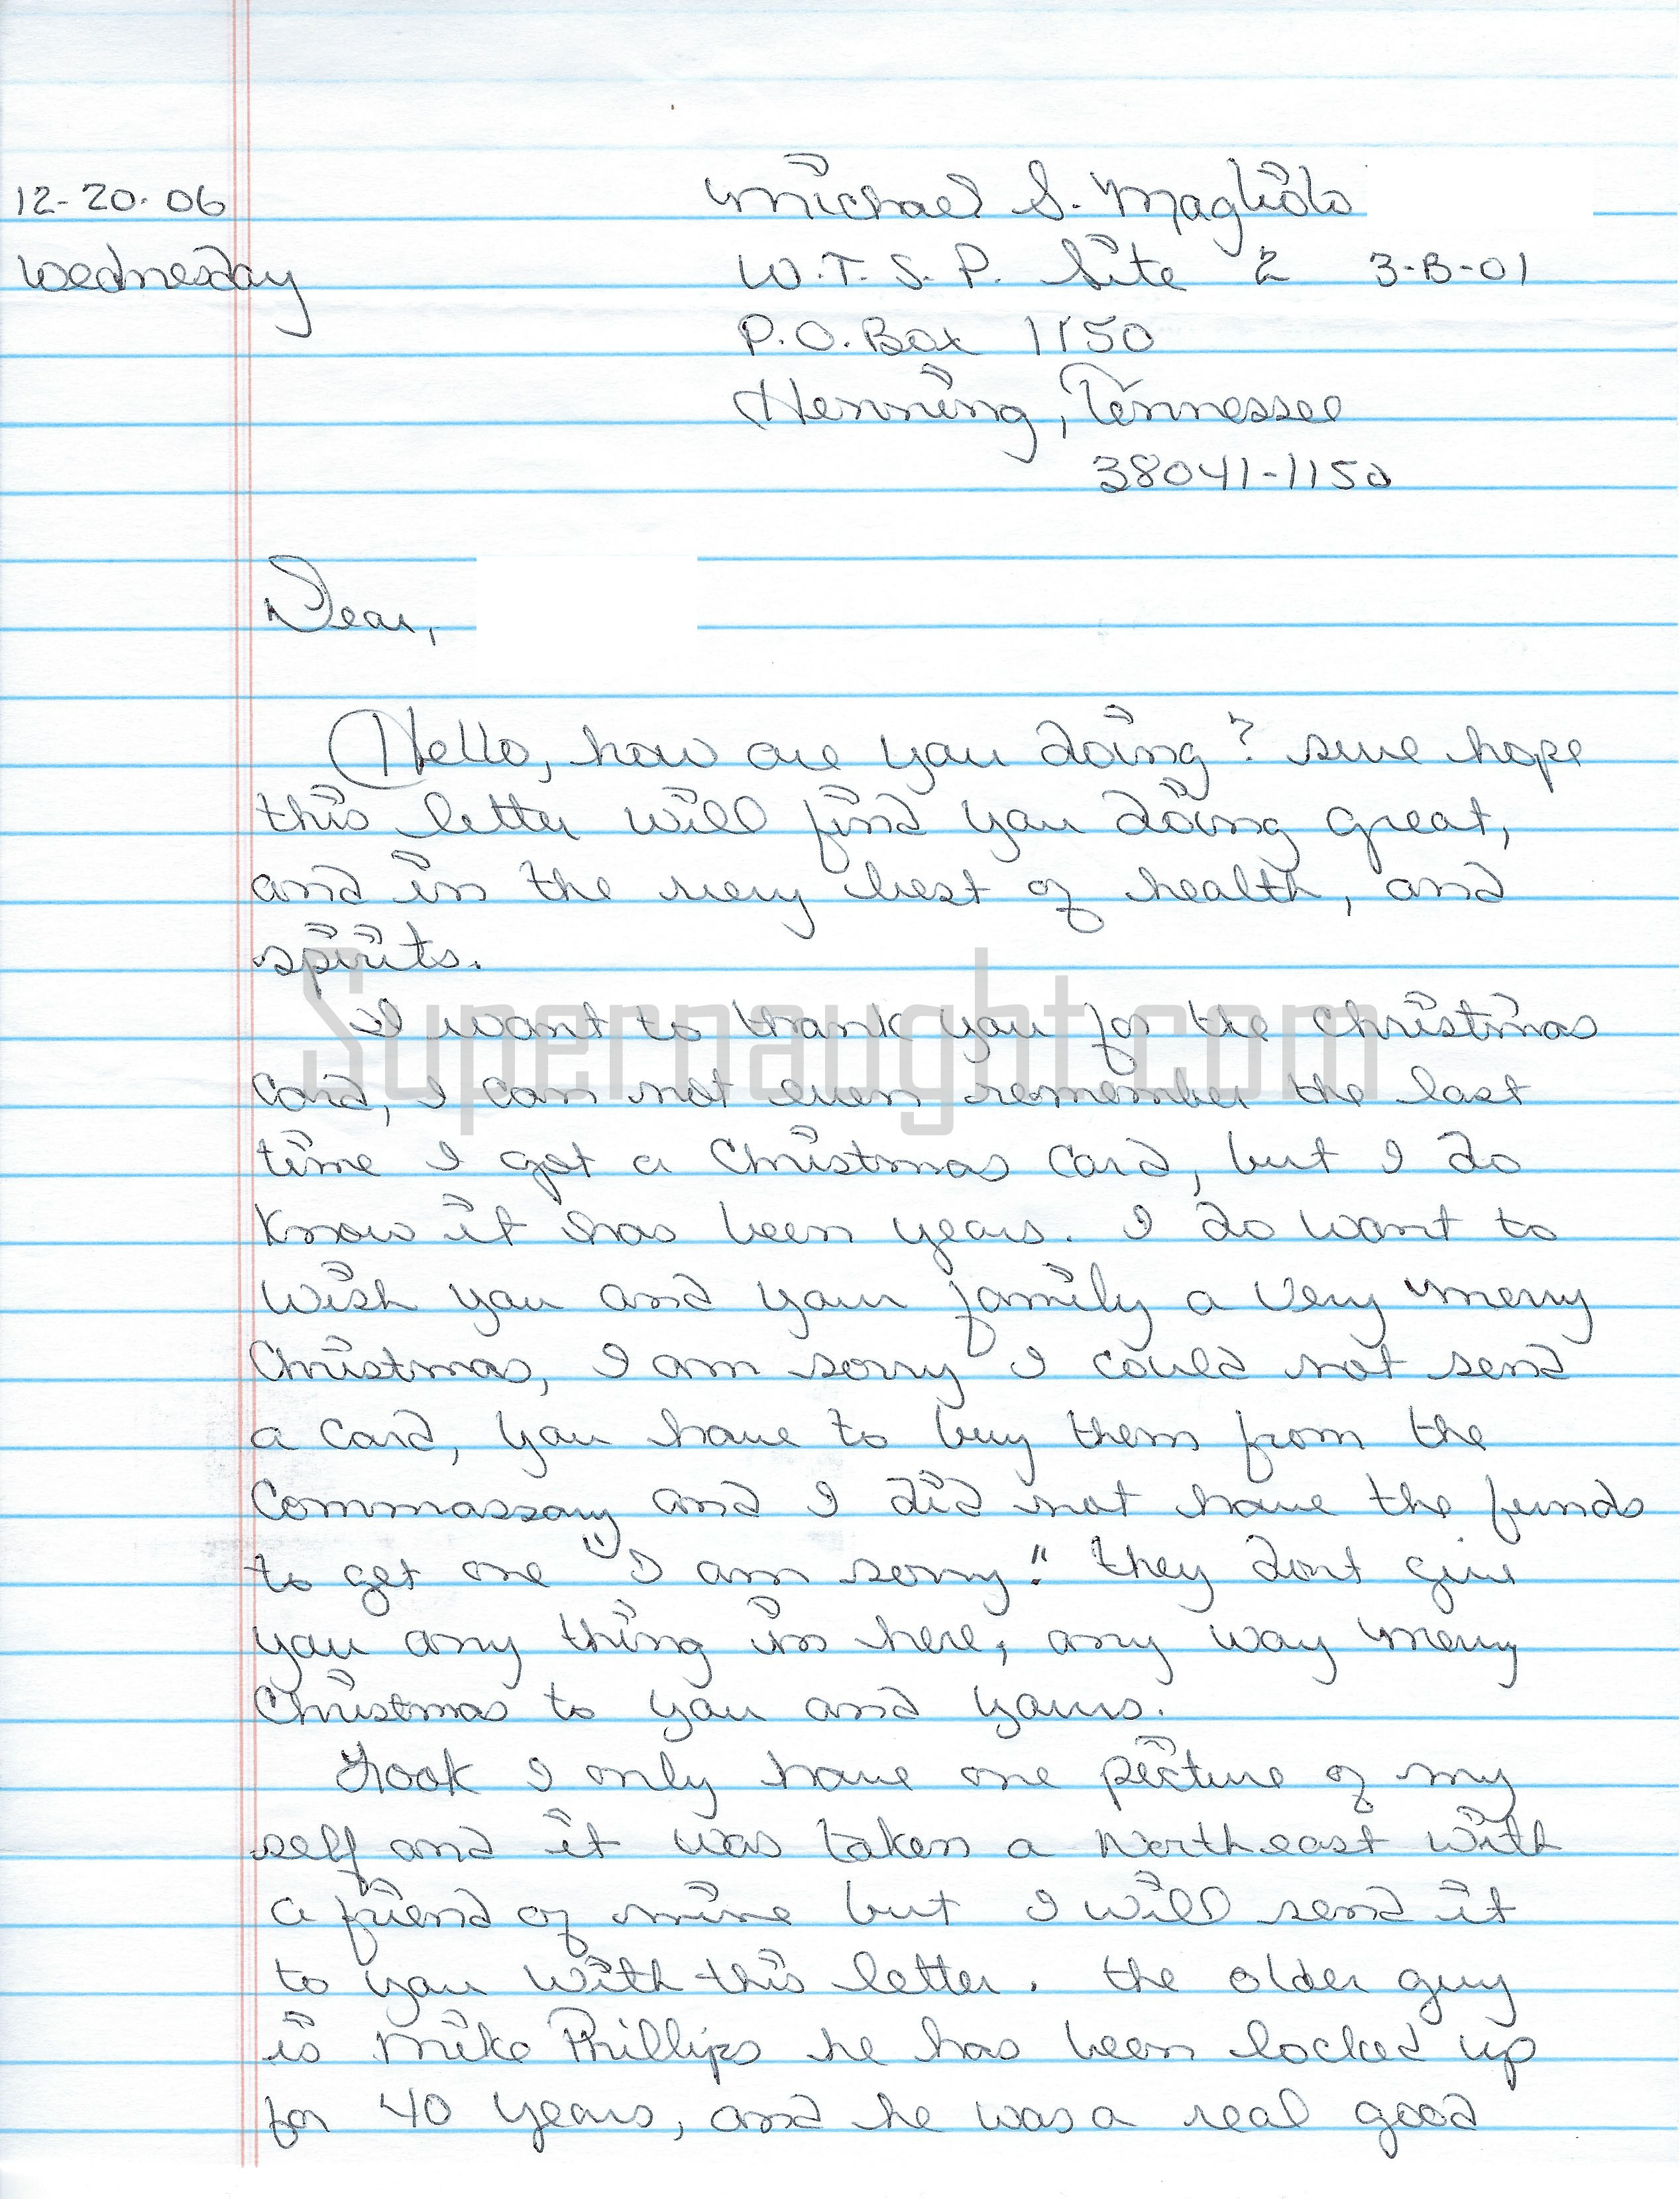 12-20-06
Wednesday
Michael S. Magliolo
W.T.S.P. Site 2 3-B-01
P.O. Box 1150
Henning, Tennessee
38041-1150
Dear,
Hello, how are you doing? sure hope
this letter will find you doing great,
and in the very best of health, and
spirits.
I want to thank you for the Christmas
Card, I can not even remember the last
time I got a Christmas Card, but I do
Know it has been years. I do want to
Wish you and your family a Very merry
Christmas, I am sorry I could not send
a Card, you have to buy them from the
Commassary and I did not have the funds
to get one "I am sorry!" they dont give
you any thing in here, any way merry
Christmas to you and yours.
Look I only have one picture of my
self and it was taken a Northeast with
a friend of mine but I will send it
to you with this letter. the older guy
is Mike Phillips he has been locked up
for 40 years, and he was a real good
Supernaught.com